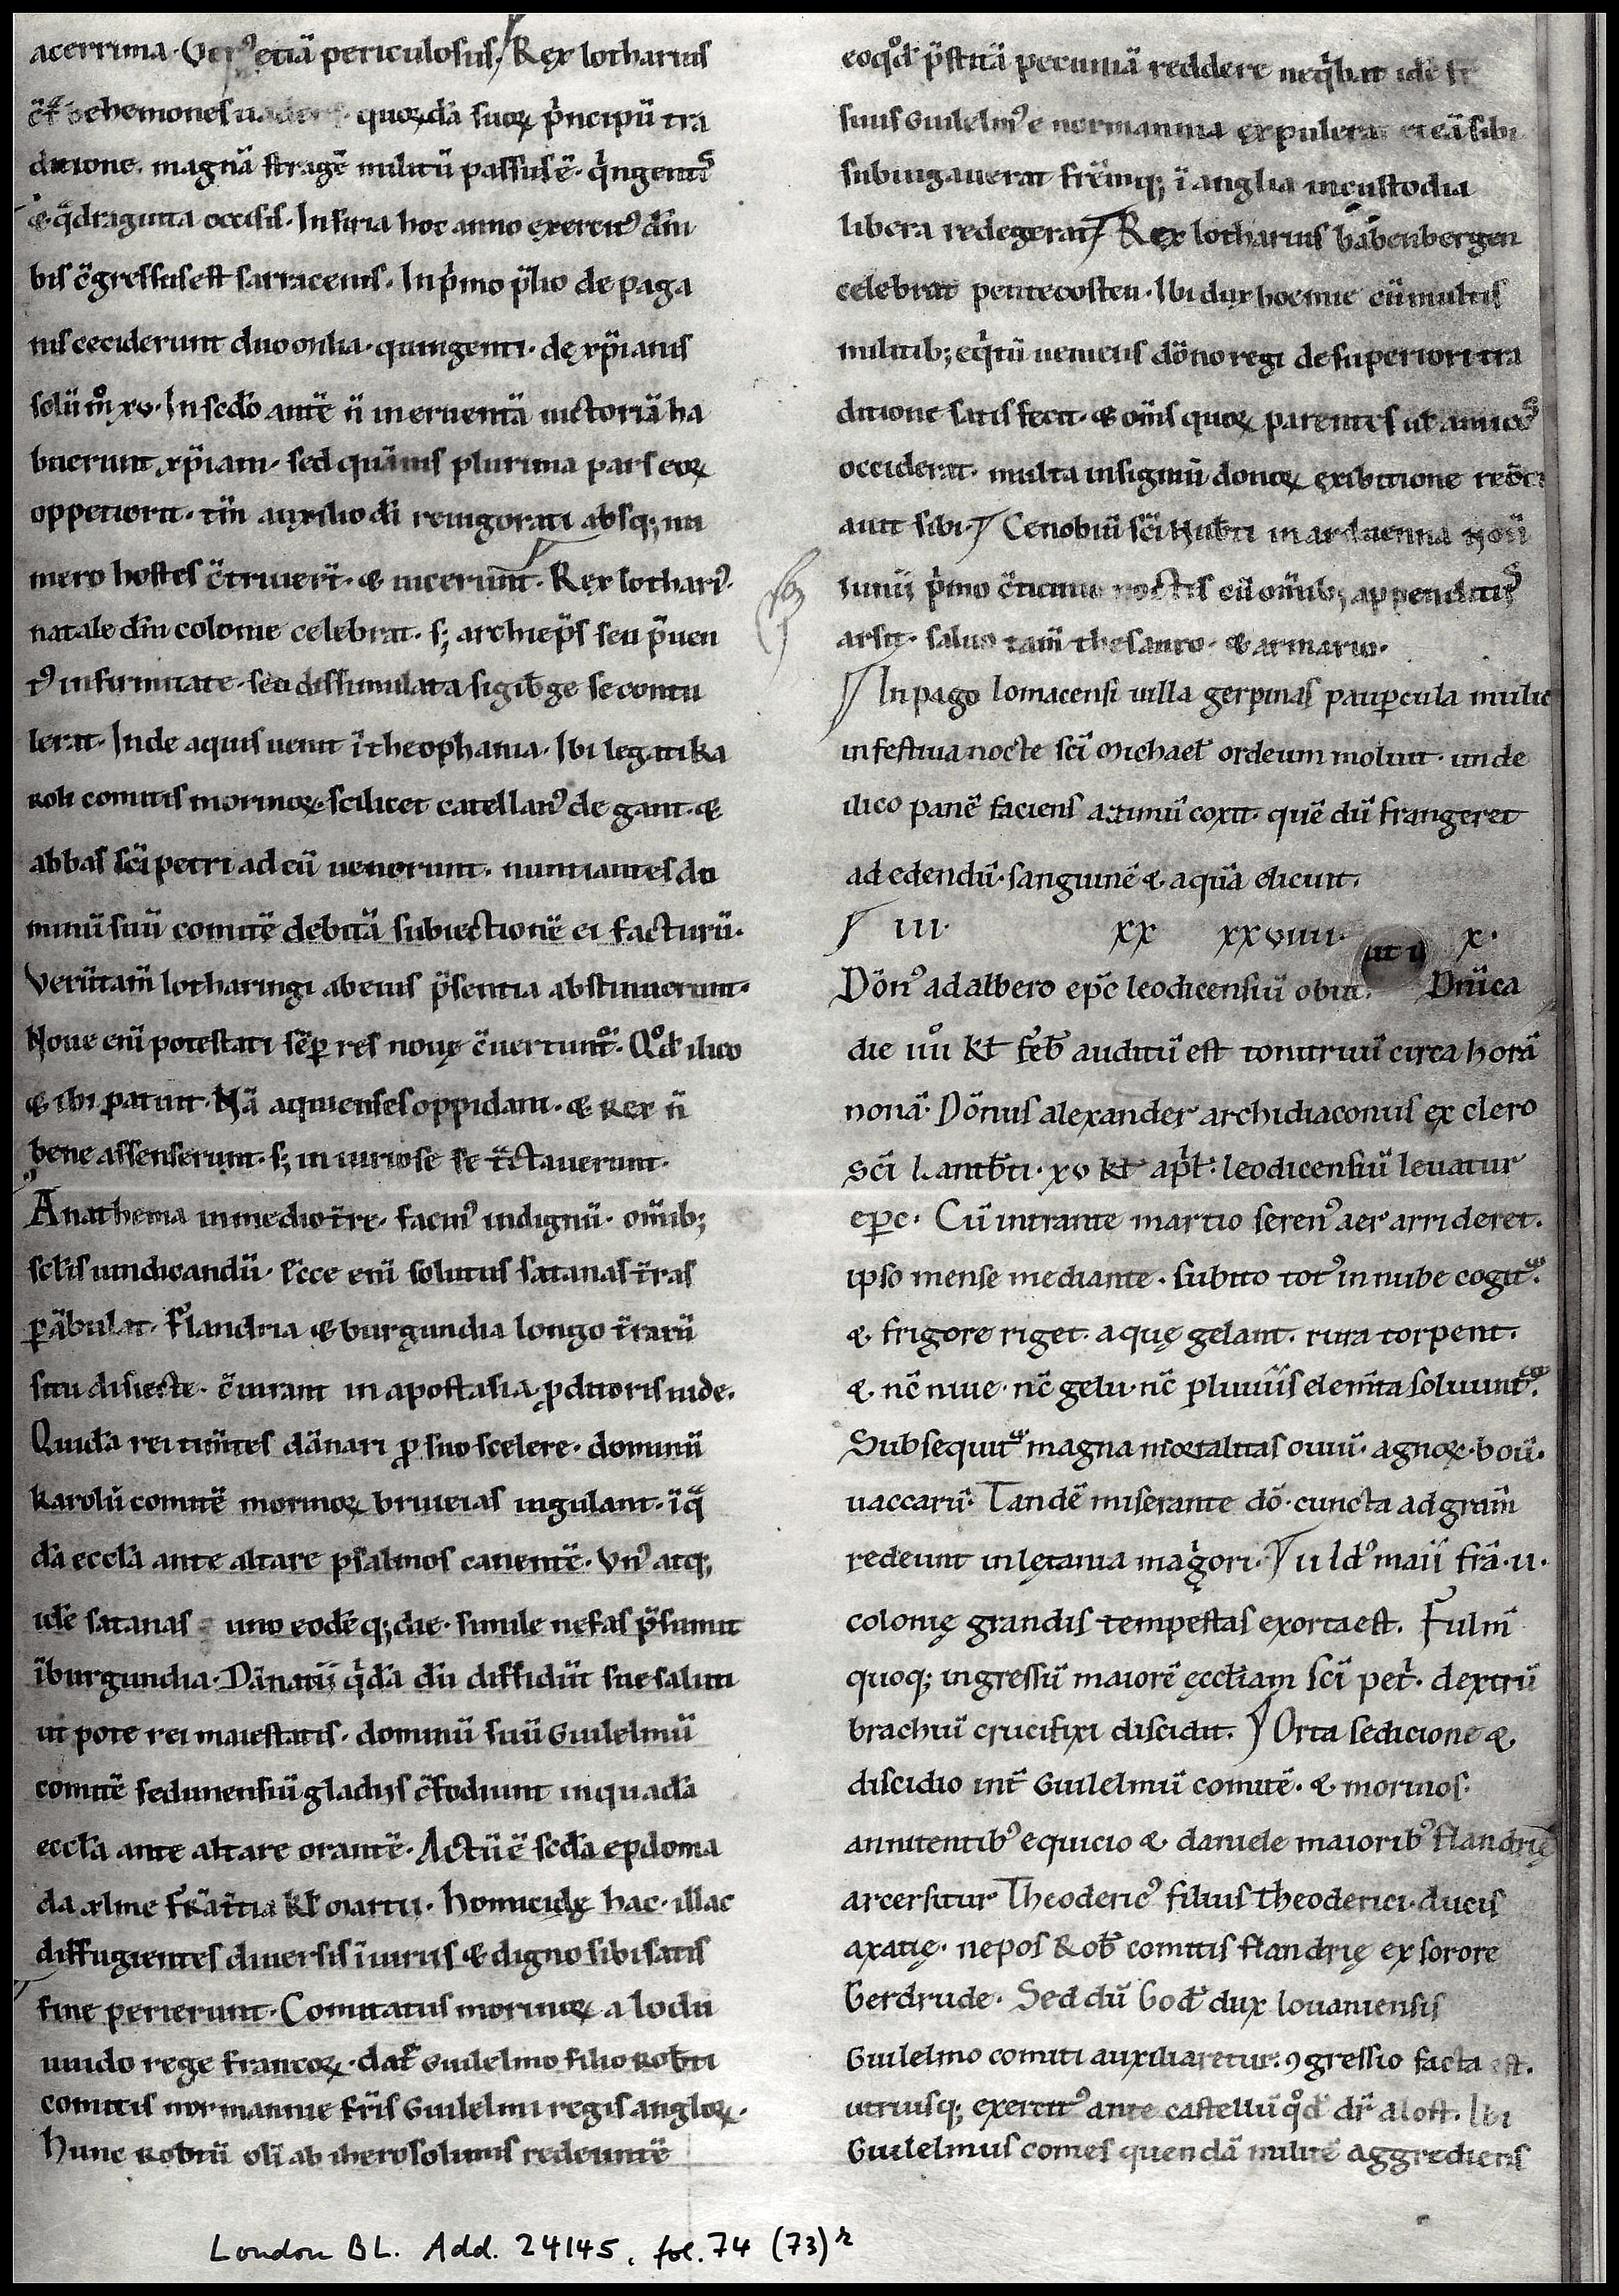 acerrima. Ver᾽ etiã periculosus. Rex lotharius
behemones quorꝝdã suoꝝ p̃ncipũ tra
ditione. magnã stragẽ militũ passus ẽ. q̃ngentis
& q̃draginta occisis. In siria hoc anno exercit᾽ dñi
bis c̃gressus est sarracenis. In p̃mo p̃lio de paga
nis ceciderunt duo milia. quingenti. dę xp̃ianis
solũ m̊ xv. In scđo autẽ ñ incruentã uictoriã ha
buerunt xp̃iani. sed quãuis plurima pars eoꝝ
oppetiorit. tm̃ auxilio đi reuigorati absq; nu
mero hostes c̃triuer̃t. & uicerunt. Rex lothari᾽.
natale dñi colonie celebrat. s; archiep̃s seu p̃uen
t᾽ infirmitate. seu dissimulata sigib̃ge se contu
lerat. Inde aquis uenit ĩ theophania. Ibi legati ka
roli comitis morinoꝝ. scilicet catellan᾽ de gant. &
abbas sc̃i petri ad eũ uenerunt. nuntiantes do
minũ suũ comitẽ debitã subiectionẽ ei facturũ.
Verũtam̃ lotharingi ab eius p̃sentia abstinuerunt.
Noue eni potestati sẽp res nouę c̃uertunt᷑. Qđ ilico
& ibi patuit. Nã aquienses oppidani. & rex ñ
bene assenserunt. s; iniuriose se tc̃tauerunt.
Anathema in medio tr̃e. facin᾽ indignũ. om̃ib;
sclis uindicandũ. Ecce eni solutus satanas tr̃as
pãbulat. Flandria & burgundia longo tr̃arũ
situ disiecte. c̃iurant in apostasia ꝓditoris iude.
Quidã rei tim̃tes dãnari ꝓ suo scelere. dominũ
karolũ comitẽ morinoꝝ bruieias iugulant. ĩ q̃
dã eccl̃a ante altare psalmos canentẽ. Vn᾽ atq;
idẽ satanas uno eodẽq; die. simile nefas p̃sumit
ĩ burgundia. Dãnatĩ q̃dã dũ diffidũt sue saluti
ut pote rei maiestatis. dominũ suũ Guilelmũ
comitẽ sedunensiũ gladiis c̃fodiunt in quadã
eccl̃a ante altare orantẽ. Actũ ẽ scđa epdoma
da xlme fr̃ã tr̃tia kł martii. homicidę hac. illac
diffugientes diuersis ĩ iuriis & digno sibi satis
fine perierunt. Comitatus morinoꝝ a lodu
uuido rege francoꝝ. dat᷑ Guilelmo filio Rotb̃ti
comitis normannie fr̃is Guilelmi regis angloꝝ.
Hunc Rob̃tũ olĩ ab iherosolimis redeuntẽ
eo qđ p̃stitã pecuniã reddere neq̃bat idẽ fr̃
suus Guilelm᾽ e normannia expulerat et eã sibi
subiugauerat fr̃emq; ĩ anglia in custodia
libera redegerat. Rex lotharius babenbergen
celebrat pentecosten. Ibi dux boemie cũ multis
militib; eq̃tũ ueniens dõno regi de superiori tra
ditione satis fecit. & om̃s quoꝝ parentes uł amicos
occiderat. multa insigniũ donoꝝ exibitione
auit sibi. Cenobiũ sc̃i Hub̃ti in arduenna
iunii p̃mo noctis cũ om̃ib; appenditiis
arsit. saluo tam̃ thesauro. & armario.
In pago lomacensi uilla gerpinas paup̃cula mulie
in festiua nocte sc̃i michael᾽ ordeum moluit. unde
ilico panẽ faciens azimũ coxit. quẽ dũ frangeret
ad edendũ. sanguinẽ & aquã elicuit.
III. XX XXVIIII. X.
Dõn᾽ adalbero epc̃ leodicensiũ obiit. Dñica
die IIII̊ kł feb̃ auditũ est tonitruũ circa horã
nonã. Dõnus alexander archidiaconus ex clero
sc̃i Lantb̃ti. xv kł ap̃l. leodicensiũ leuatur
epc̃. Cũ intrante martio seren᾽ aer arrideret.
ipso mense mediante. subito tot᾽ in nube cogit᷑.
& frigore riget. aquę gelant. rura torpent.
& nc̃ niue. nc̃ gelu. nc̃ pluuiis elem̃ta soluunt᷑.
Subsequit᷑ magna mortalitas ouiũ. agnoꝝ. boũ.
uaccarũ. Tandẽ miserante dõ. cuncta ad gram̃
redeunt in lętania magꝗori. II id᾽ maii fr̃ã. II.
colonię grandis tempestas exorta est. Fulm̃
quoq; ingressũ maiorẽ ęccl̃iam sc̃i pet̃. dextrũ
brachiũ crucifixi discidit. Orta sedicione &
discidio int̃ Guilelmũ comitẽ. & morinos.
annitentib᾽ equicio & daniele maiorib᾽ flandrię
arcersitur Theoderic᾽ filius theoderici. ducis
axatię. nepos Rob̃ comitis flandrię ex sorore
Gerdrude. Sed dũ Gođ dux louaniensis
Guilelmo comiti auxiliaretur. ꝯgressio facta est.
utriusq; exercit᾽ ante castellũ qđ dr̃ alost. Ibi
Guilelmus comes quendã militẽ aggrediens
London BL. Add. 24145, fol. 74 (73)r